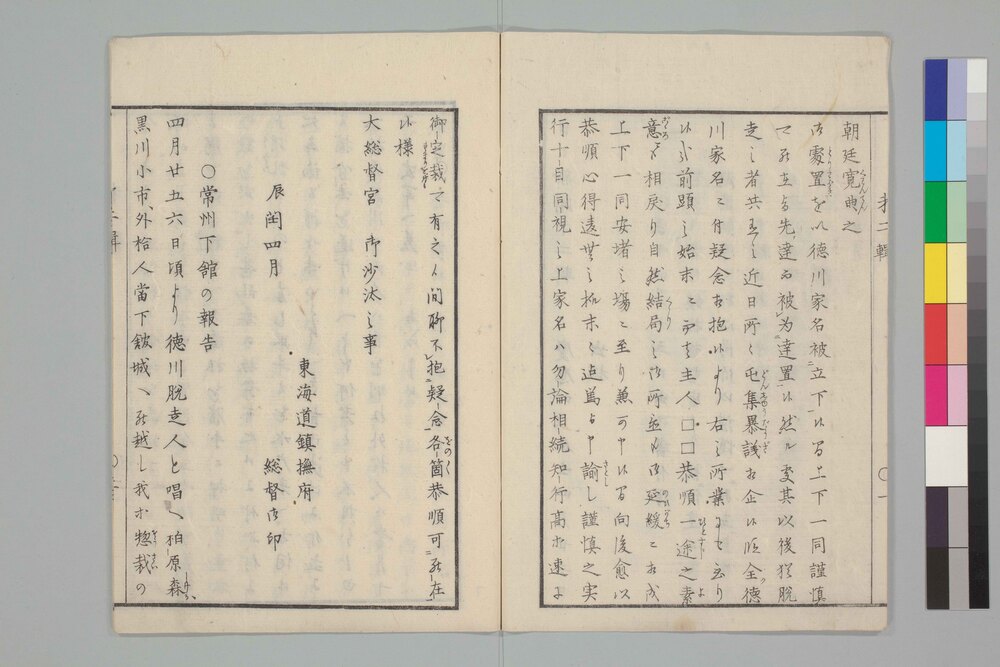 朝廷寛典之
御處置を以徳川家名被立下候間上下一同謹慎
可罷在旨先達而被為達置候然ル處其以後猶脱
走之者共有之近日所々屯集暴議相企候段全徳
川家名ニ付疑念相抱候より右之所業にも至り
候哉前顕之始末ニ而者主人□□恭順一途之素
意ニも相戻り自然結局之御所置も御延緩ニ相成
上下一同安堵之場ニ至り兼可申候間向後愈以
恭順心得違無之様末々迄篤与申諭し謹慎之実
行十目同視之上家名ハ勿論相続知行高等速に
第二輯
御定裁可有之候間聊不抱疑念各箇恭順可罷在
候様
大総督宮　御沙汰之事
東海道鎮撫府
辰閏四月　総督御印
○常州下舘の報告
四月廿五六日頃より徳川脱走人と唱へ柏原森
黒川小市、外拾人當下舘城へ罷越し我等惣裁の